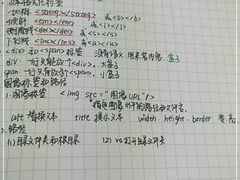 加粗 <strong></strong> 或<b></b>
倾斜 <em></em> 或<i></i>
删除线 <del></del> 或<s></s>
下划线 <ins></ins> 或<u></u>
<div>和<span>标签 没有语义，用来布局内容，盒子
div 一行只能放1个<div>，大盒子
span 一行可放多个<span>，小盒子
图像标签和路径
1.图像标签 <img src="图像URL"/>
指图像文件的路径和文件名
alt 替换文本 title 提示文本 width, height, border
2.路径
(1)目录文件夹和根目录 (2) VS打开目录文件夹